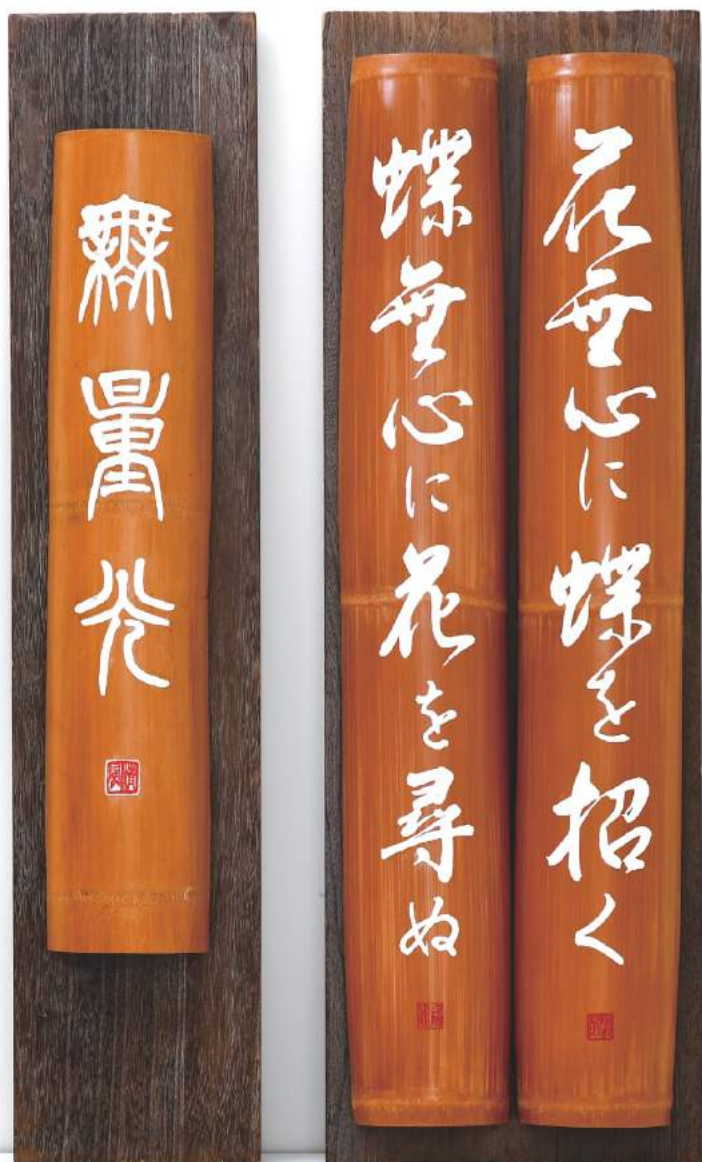 花無心に蝶を招く
蝶無心に花を尋ぬ
無量光